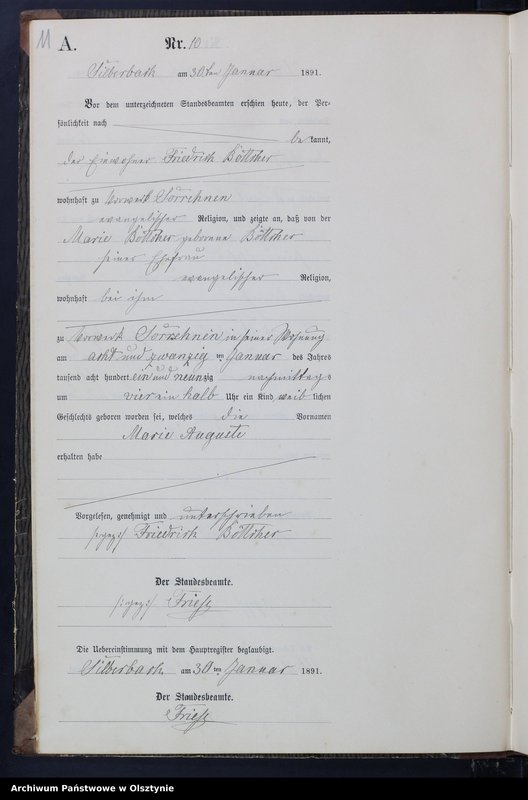 11 A. Nr. 10
Silberbach am 30ten Januar 1891.
Vor dem unterzeichneten Standesbeamten erschien heute, der Per-
sönlichkeit nach
be kannt,
der Einwohner Friedrich Böttcher
wohnhaft zu Vorwerk Sorrehnen
evangelischer Religion, und zeigte an, daß von der
Marie Böttcher geborene Böttcher
seiner Ehefrau
evangelischer Religion,
wohnhaft bei ihm
zu Vorwerk Sorrehnen in seiner Wohnung
am acht und zwanzig ten Januar des Jahres
tausend acht hundert ein und neunzig nachmittag s
um vier ein halb Uhr ein Kind weib lichen
Geschlechts geboren worden sei, welches die Vornamen
Marie Auguste
erhalten habe
Vorgelesen, genehmigt und unterschrieben
(:gez:) Friedrich Böttcher
Der Standesbeamte.
(:gez:) Friese
Die Uebereinstimmung mit dem Hauptregister beglaubigt.
Silberbach am 30 ten Januar 1891.
Der Standesbeamte.
Friese
Archiwum Państwowe w Olsztynie